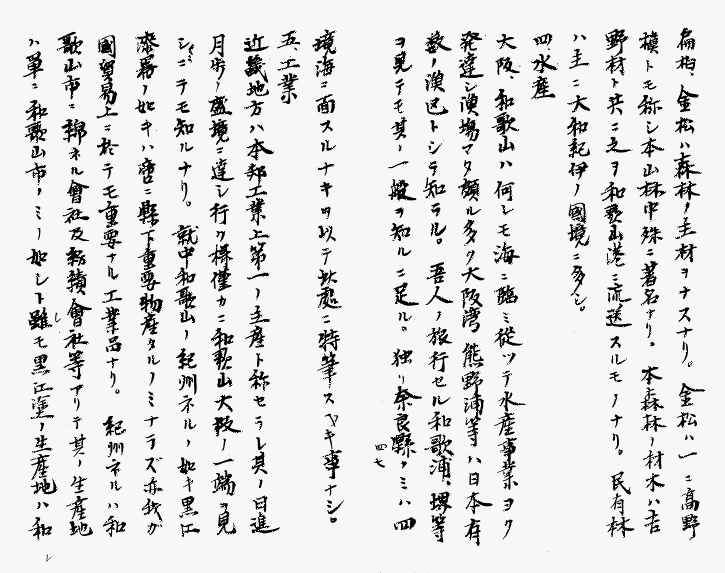 扁柏、金松ハ森林ノ主材ヲナスナリ。金松ハ一ニ高野
槙トモ称シ本山林中殊ニ著名ナリ。本森林ノ材木ハ吉
野材ト共ニ之ヲ和歌山港ニ流送スルモノナリ。民有林
ハ主ニ大和紀伊ノ國境ニ多シ。
四、水産
大阪、和歌山ハ何レモ海ニ臨ミ従ツテ水産事業ヨク
発達シ漁場マタ頗ル多ク大阪湾熊野浦等ハ日本有
数ノ漁区トシテ知ラル。吾人ノ旅行セル和歌浦、堺等
ヲ見テモ其ノ一般ヲ知ルニ足ル。独リ奈良縣ノミハ四
四七
境海ニ面スルナキヲ以テ此處ニ特筆スベキ事ナシ。
五、工業
近畿地方ハ本邦工業上第一ノ主産ト称セラレ其ノ日進
月歩ノ盛境ニ達シ行ク様僅カニ和歌山大阪ノ一端ヲ見
シニテモ知ルナリ。就中和歌山ノ紀州ネルノ如キ黒江
漆器ノ如キハ啻ニ縣下重要物産タルノミナラズ亦我ガ
國貿易上ニ於テモ重要ナル工業品ナリ。紀州ネルハ和
歌山市ニ綿ネル會社及紡績會社等アリテ其ノ生産地
ハ單ニ和歌山市ノミノ如シト雖モ黒江塗ノ生産地ハ和